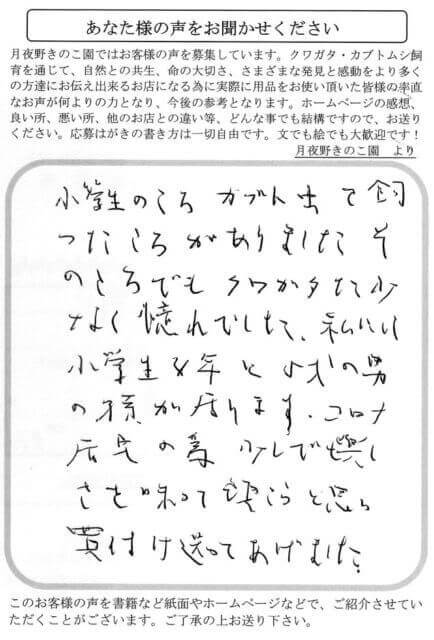 あなた様の声をお聞かせください
月夜野きのこ園ではお客様の声を募集しています。クワガタ・カブトムシ飼
育を通じて、自然との共生、命の大切さ、さまざまな発見と感動をより多く
の方達にお伝え出来るお店になる為に実際に用品をお使い頂いた皆様の率直
なお声が何よりの力となり、今後の参考となります。ホームページの感想、
良い所、悪い所、他のお店との違い等、どんな事でも結構ですので、お送り
ください。応募はがきの書き方は一切自由です。文でも絵でも大歓迎です！
月夜野きのこ園　より
小学生のころ カブト虫 て飼
つたころがありました そ
のころでも クワガタた少
なく 憶れでした、私には
小学生 年と 才の男
の孫が居ります. コロナ
居宅の為 少しで楽し
さを味って と思
買付け送ってあげました
このお客様の声を書籍など紙面やホームページなどで、ご紹介させてい
ただくことがございます。ご了承の上お送り下さい。